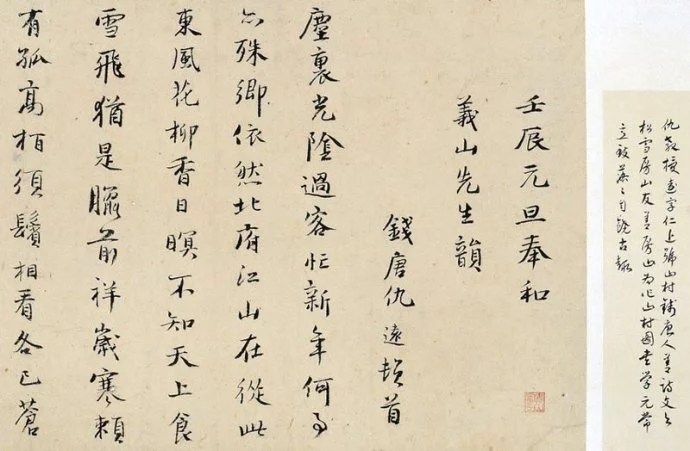 仇教授遠字仁近號山村錢唐人善詩文與
松雪房山友善房山為作山村圖書學元常
立致蕭〻自饒古趣
壬辰元旦奉和
義山先生韻
錢唐仇遠頓首
塵裏光陰過客忙新年何事
亦殊鄉依然北府江山在從此
東風花柳香日暝不知天上食
雪飛猶是臘前祥歲寒賴
有孤高栢須鬢相看各已蒼